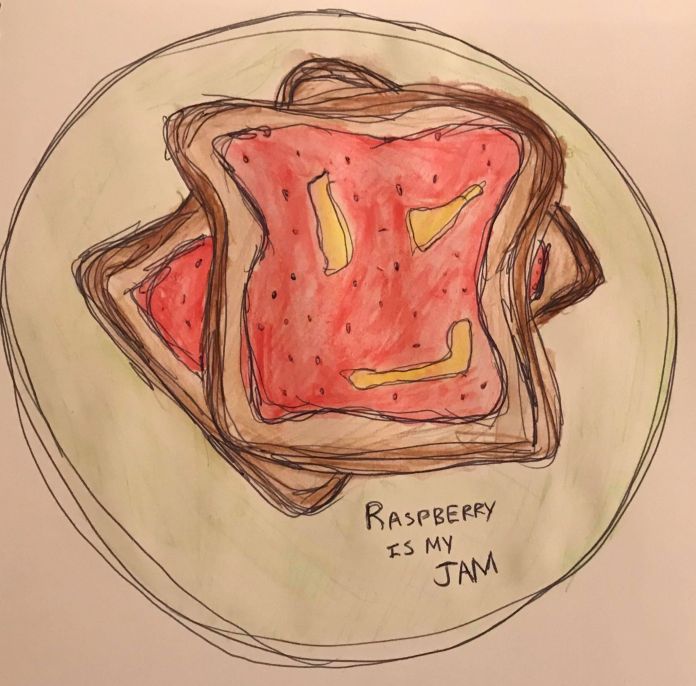 RASPBERRY
IS MY
JAM